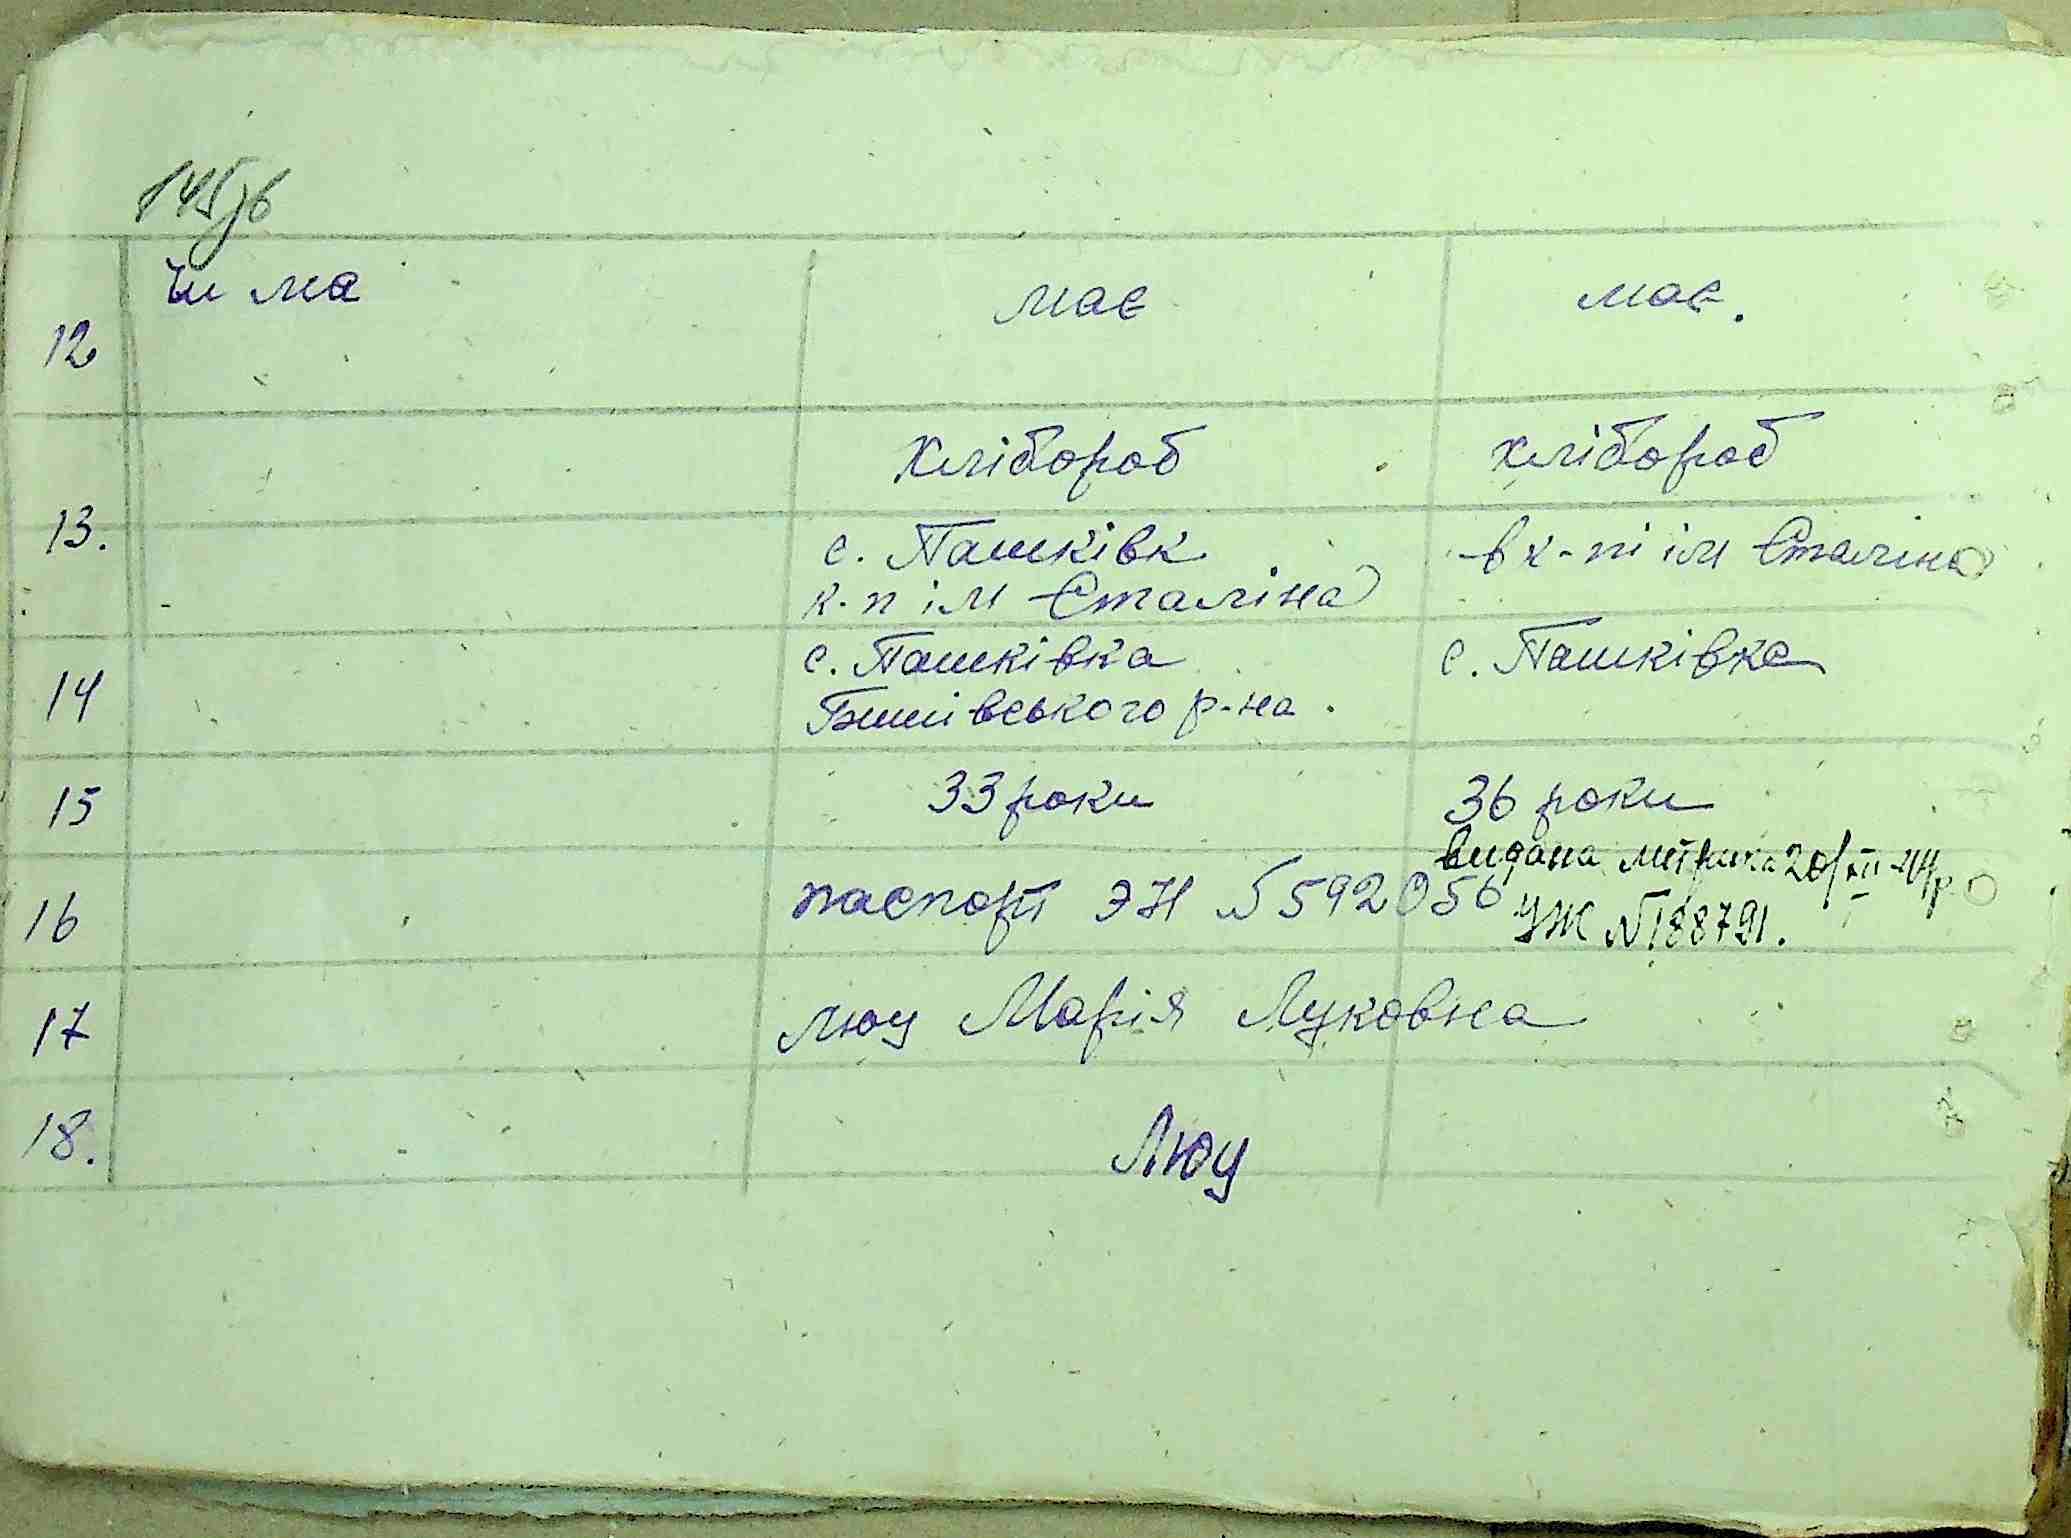 145зв
Чи ма має має.
12
хлібороб хлібороб
13. с. Пашківк в к-пі ім Сталіна
к-п ім Сталіна
с. Пашківка с. Пашківка
14 р-на.
15 33 роки 36 роки
видана метрика 20/XII-44р.
16 паспорт ЭН №592056
УЖ №188791.
17 Люу Марія Луковна
18. Люу